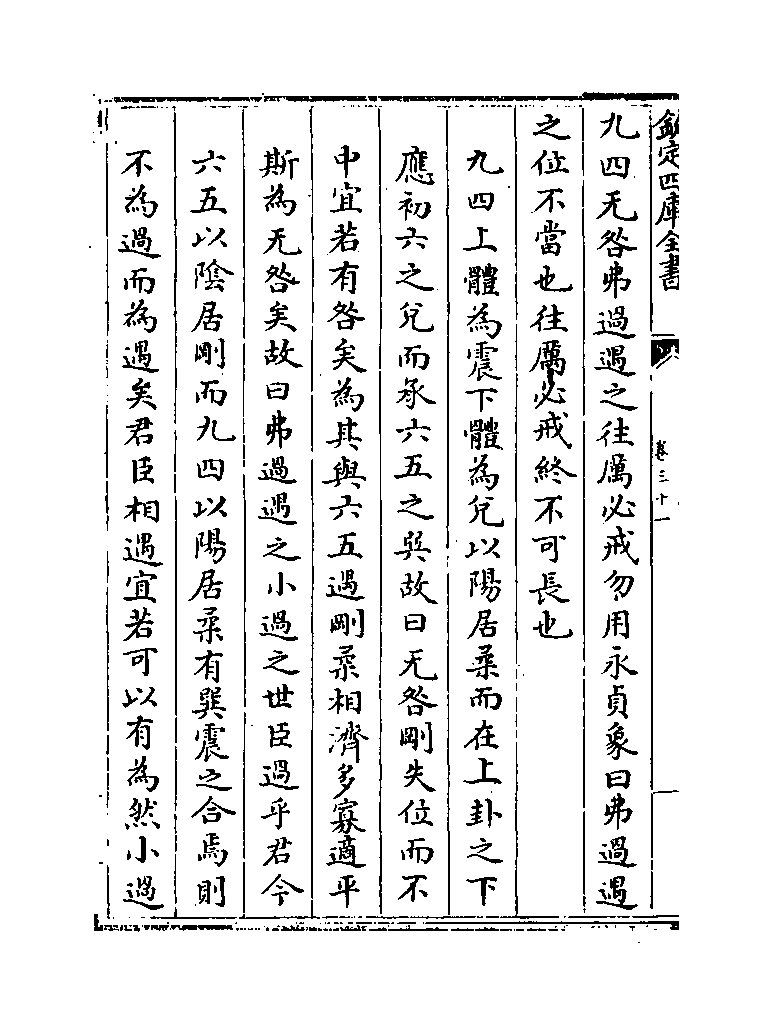 欽定四庫全書
卷三十一
九四无咎弗過遇之往厲必戒勿用永貞象曰弗過遇
之位不當也往厲必戒終不可長也
九四上體為震下體為兌以陽居柔而在上卦之下
應初六之兌而承六五之巽故曰无咎剛失位而不
中宜若有咎矣為其與六五遇剛柔相濟多寡適平
斯為无咎矣故曰弗過遇之小過之世臣過乎君今
六五以陰居剛而九四以陽居柔有巽震之合焉則
不為過而為遇矣君臣相遇宜若可以有為然小過